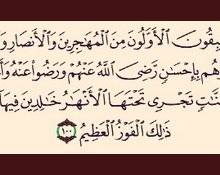 بِقُونَ ٱلْأَوَّلُونَ مِنَ ٱلْمُهَٰجِرِينَ وَٱلْأَنصَارِ وَ
هُم بِإِحْسَٰنٍ رَّضِىَ ٱللَّهُ عَنْهُمْ وَرَضُوا۟ عَنْهُ وَأَ
نَّٰتٍ تَجْرِى تَحْتَهَا ٱلْأَنْهَٰرُ خَٰلِدِينَ فِيهَا
ذَٰلِكَ ٱلْفَوْزُ ٱلْعَظِيمُ ١٠٠